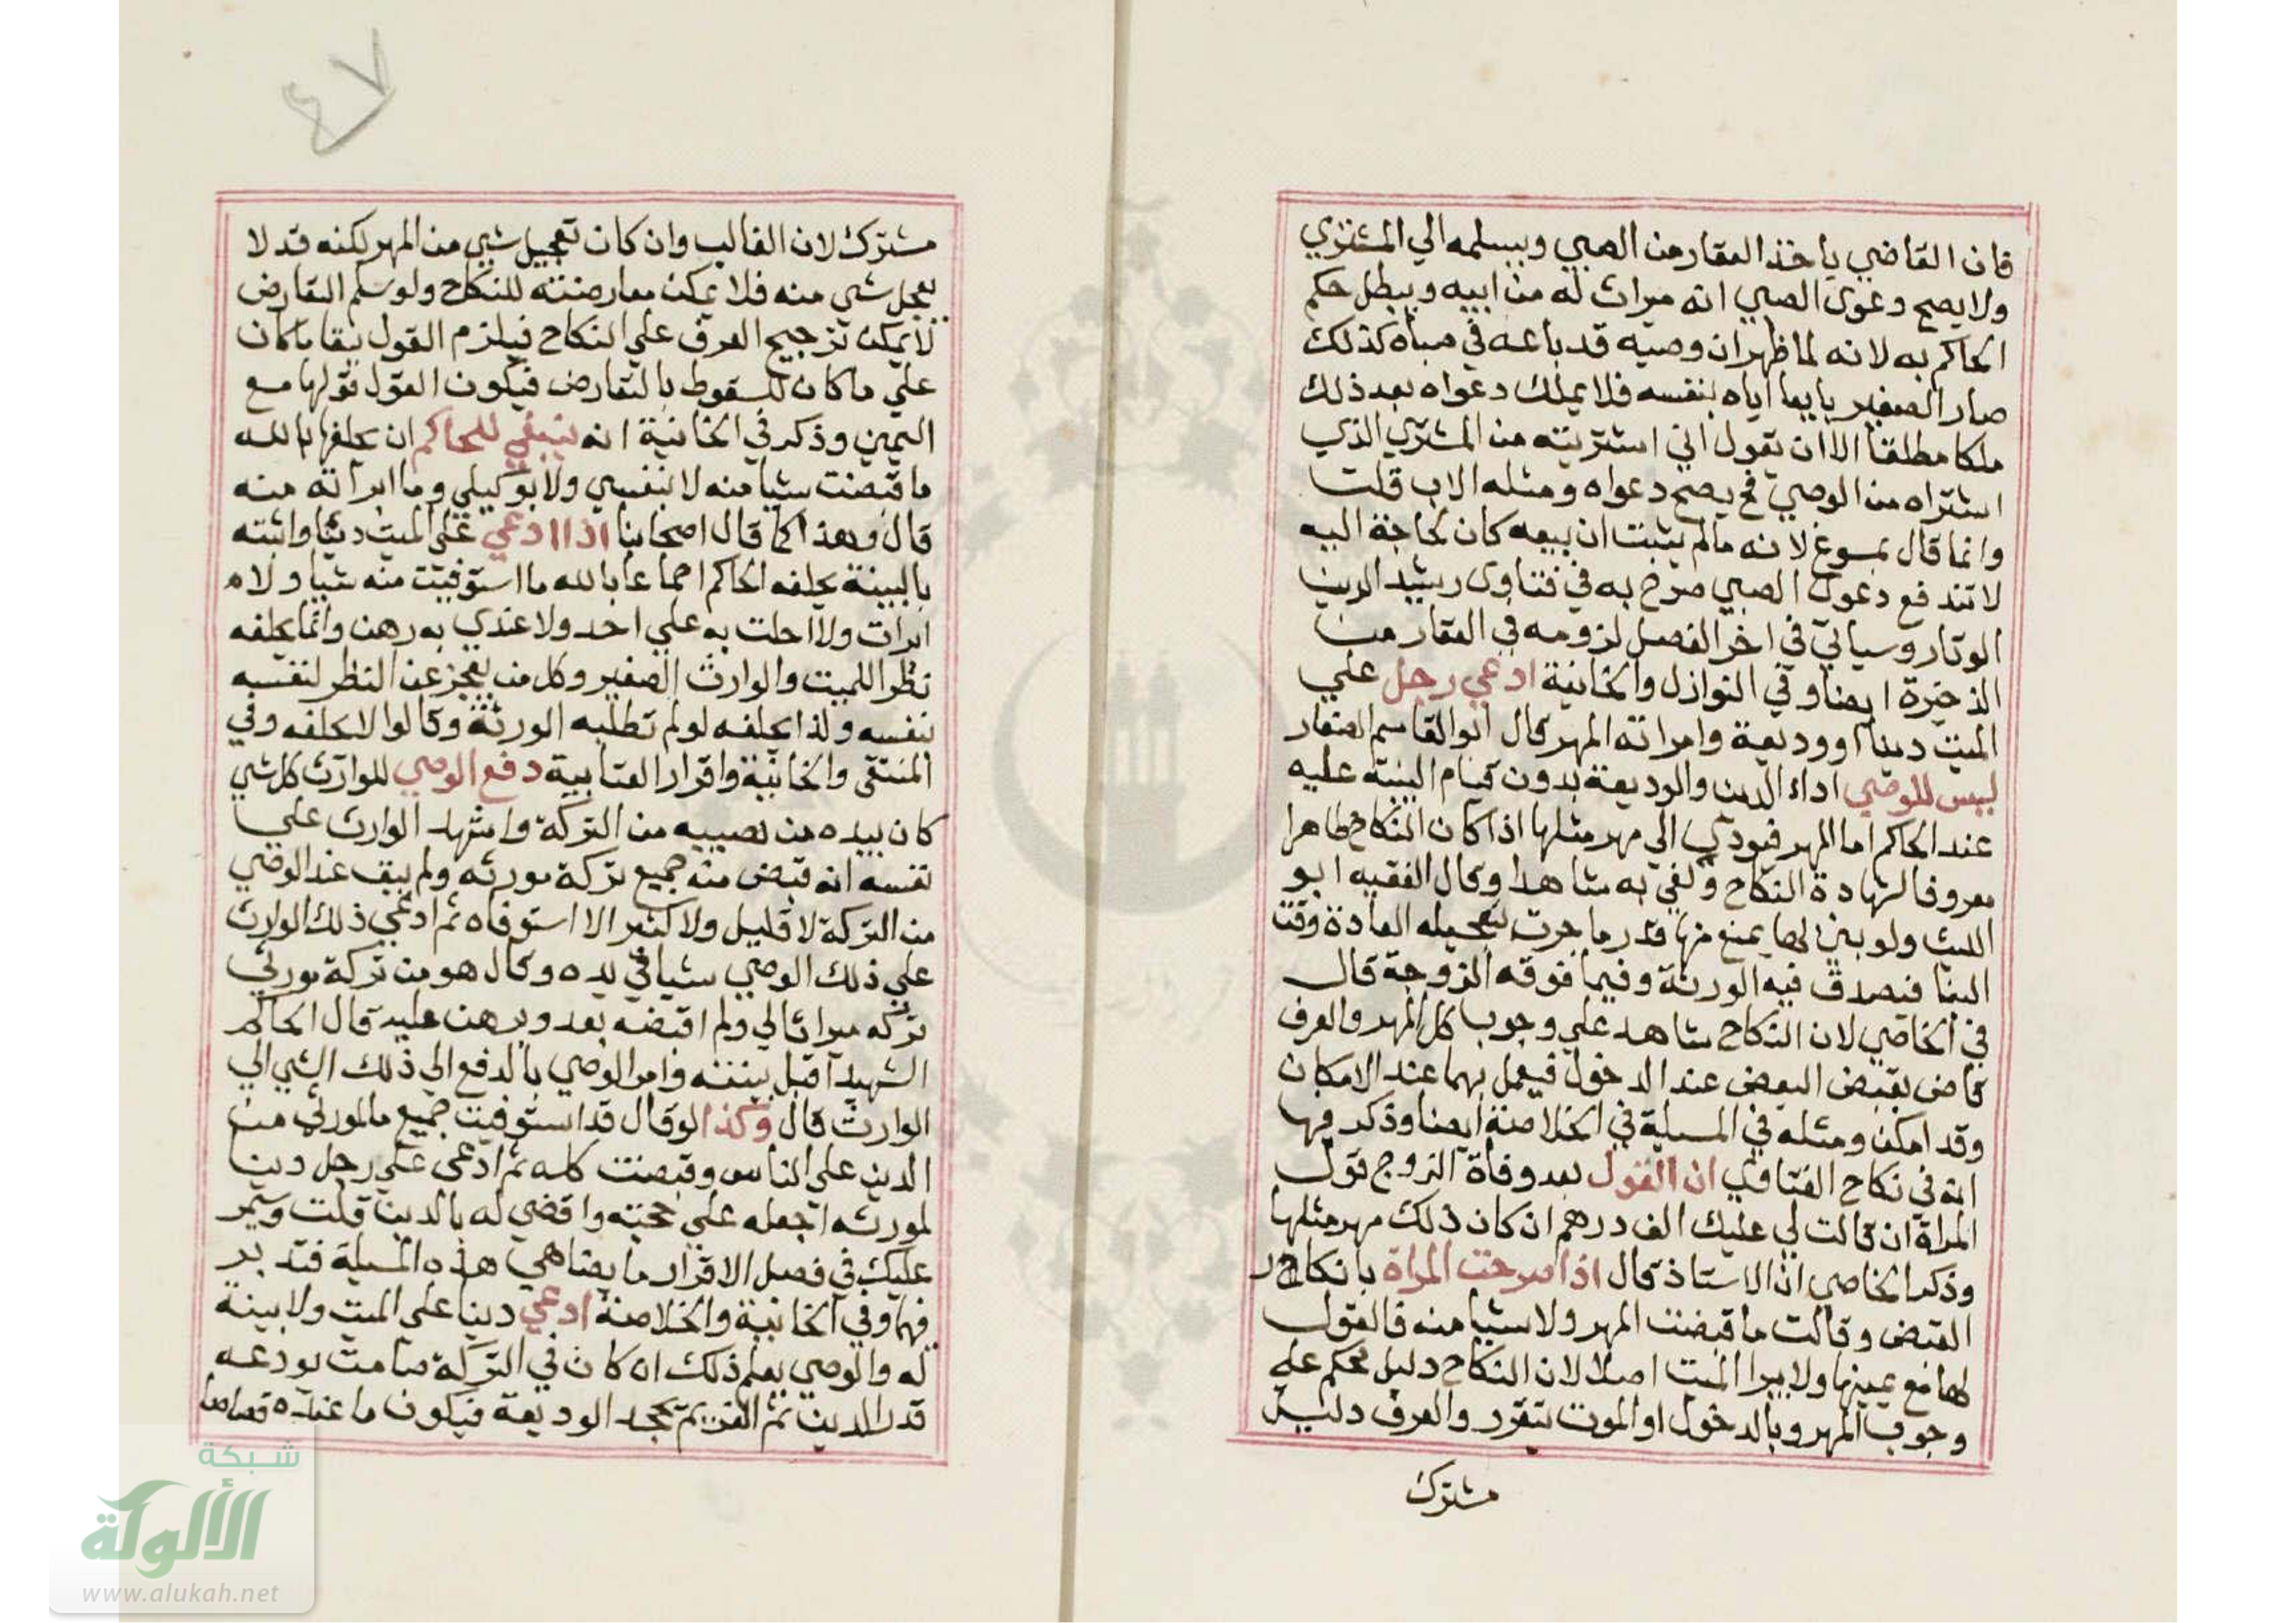 فان القاضي ياخذ العقار من الصبي ويسلمه الي المشتري
ولا يصح دعوي الصبي انه ميراث له من ابيه ويبطل حكم
الحاكم به لانه لما ظهر ان وصيه قد باعه في صباه كذلك
صار الصغير بايعا اياه بنفسه فلا يملك دعواه بعد ذلك
ملكا مطلقا الا ان يقول اني اشتريته من المشتري الذي
اشتراه من الوصي فح يصح دعواه ومثله الاب قلت
وانما قال بمسوغ لانه مالم يثبت ان بيعه كان لحاجة اليه
لا تندفع دعوي الصبي صرح به في فتاوي رشيد الدين
الوتار وسياتي في اخر الفصل لزومه في العقار من
الذخيرة ايضا وفي النوازل والخانية ادعي رجل علي
الميت دينا او وديعة وامراته المهر قال ابو القاسم الصفار
ليس للوصي اداء الدين والوديعة بدون قيام البينة عليه
عند الحاكم اما المهر فيودي الي مهر مثلها اذا كان النكاح ظاهرا
معروفا لشهادة النكاح وكفي به شاهدا وقال الفقيه ابو
الليث ولو بني لها يمنع منها قدر ما جرت بتعجيله العادة وقت
البنا فيصدق فيه الورثة وفيما فوقه الزوجة قال
في الخاصي لان النكاح شاهد علي وجوب كل المهر والعرف
قاض بقبض البعض عند الدخول فيعمل بهما عند الامكان
وقد امكن ومثله في المسيلة في الخلاصة ايضا وذكر فيها
انه في نكاح الفتاوي ان القول بعد وفاة الزوج قول
المراة ان قالت لي عليك الف درهم ان كان ذلك مهر مثلها
وذكر الخاصي ان الاستاذ قال اذا صرحت المراة بانكار
القبض وقالت ما قبضت المهر ولا شيا منه فالقول
لها مع يمينها ولا يبرا الميت اصلا لان النكاح دليل محكم علي
وجوب المهر وبالدخول او الموت يتقرر والعرف دليل
مشترك
مشترك لان الغالب وان كان تعجيل شي من المهر لكنه قد لا
يعجل شي منه فلا يمكن معارضته للنكاح ولو سلم التعارض
لا يمكن ترجيح العرف علي النكاح فيلزم القول ببقا ما كان
علي ما كان للسقوط بالتعارض فيكون القول قولها مع
اليمين وذكر في الخانية انه ينبغي للحاكم ان يحلفها بالله
ما قبضت شيا منه لا بنفسي ولا بوكيلي وما ابراته منه
قال وهذا كما قال اصحابنا اذا ادعي علي الميت دينا واثبته
بالبينة يحلفه الحاكم اجماعا بالله ما استوفيت منه شيا ولا
ابرات ولا احلت به علي احد ولا عندي به رهن وانما يحلفه
نظرا للميت والوارث الصغير وكل من يعجز عن النظر لنفسه
بنفسه ولذا يحلفه لو لم تطلبه الورثة وقالوا لا تحلفه وفي
المنتقي والخانية واقرار العتابية دفع الوصي للوارث كل شي
كان بيده من نصيبه من التركة واشهد الوارث علي
نفسه انه قبض منه جميع تركة مورثه ولم يبق عند الوصي
من التركة لا قليل ولا كثير الا استوفاه ثم ادعي ذلك الوارث
علي ذلك الوصي شيا في يده وقال هو من تركة مورثي
تركه ميراثا لي ولم اقبضه بعد وبرهن عليه قال الحاكم
الشهيد اقبل بينته وامر الوصي بالدفع الي ذلك الشي الي
الوارث قال وكذا لو قال قد استوفيت جميع ما لمورثي من
الدين علي الناس وقبضت كله ثم ادعي علي رجل دينا
لمورثه اجعله علي حجته واقضي له بالدين قلت وسيمر
عليك في فصل الاقرار ما يضاهي هذه المسيلة فتدبر
فيها وفي الخانية والخلاصة ادعي دينا علي الميت ولا بينة
له والوصي يعلم ذلك ان كان في التركة صامت يودعه
قدر الدين ثم الغريم يجحد الوديعة فيكون ما عنده قصاصا
شبكة
الألوكة
www.alukah.net